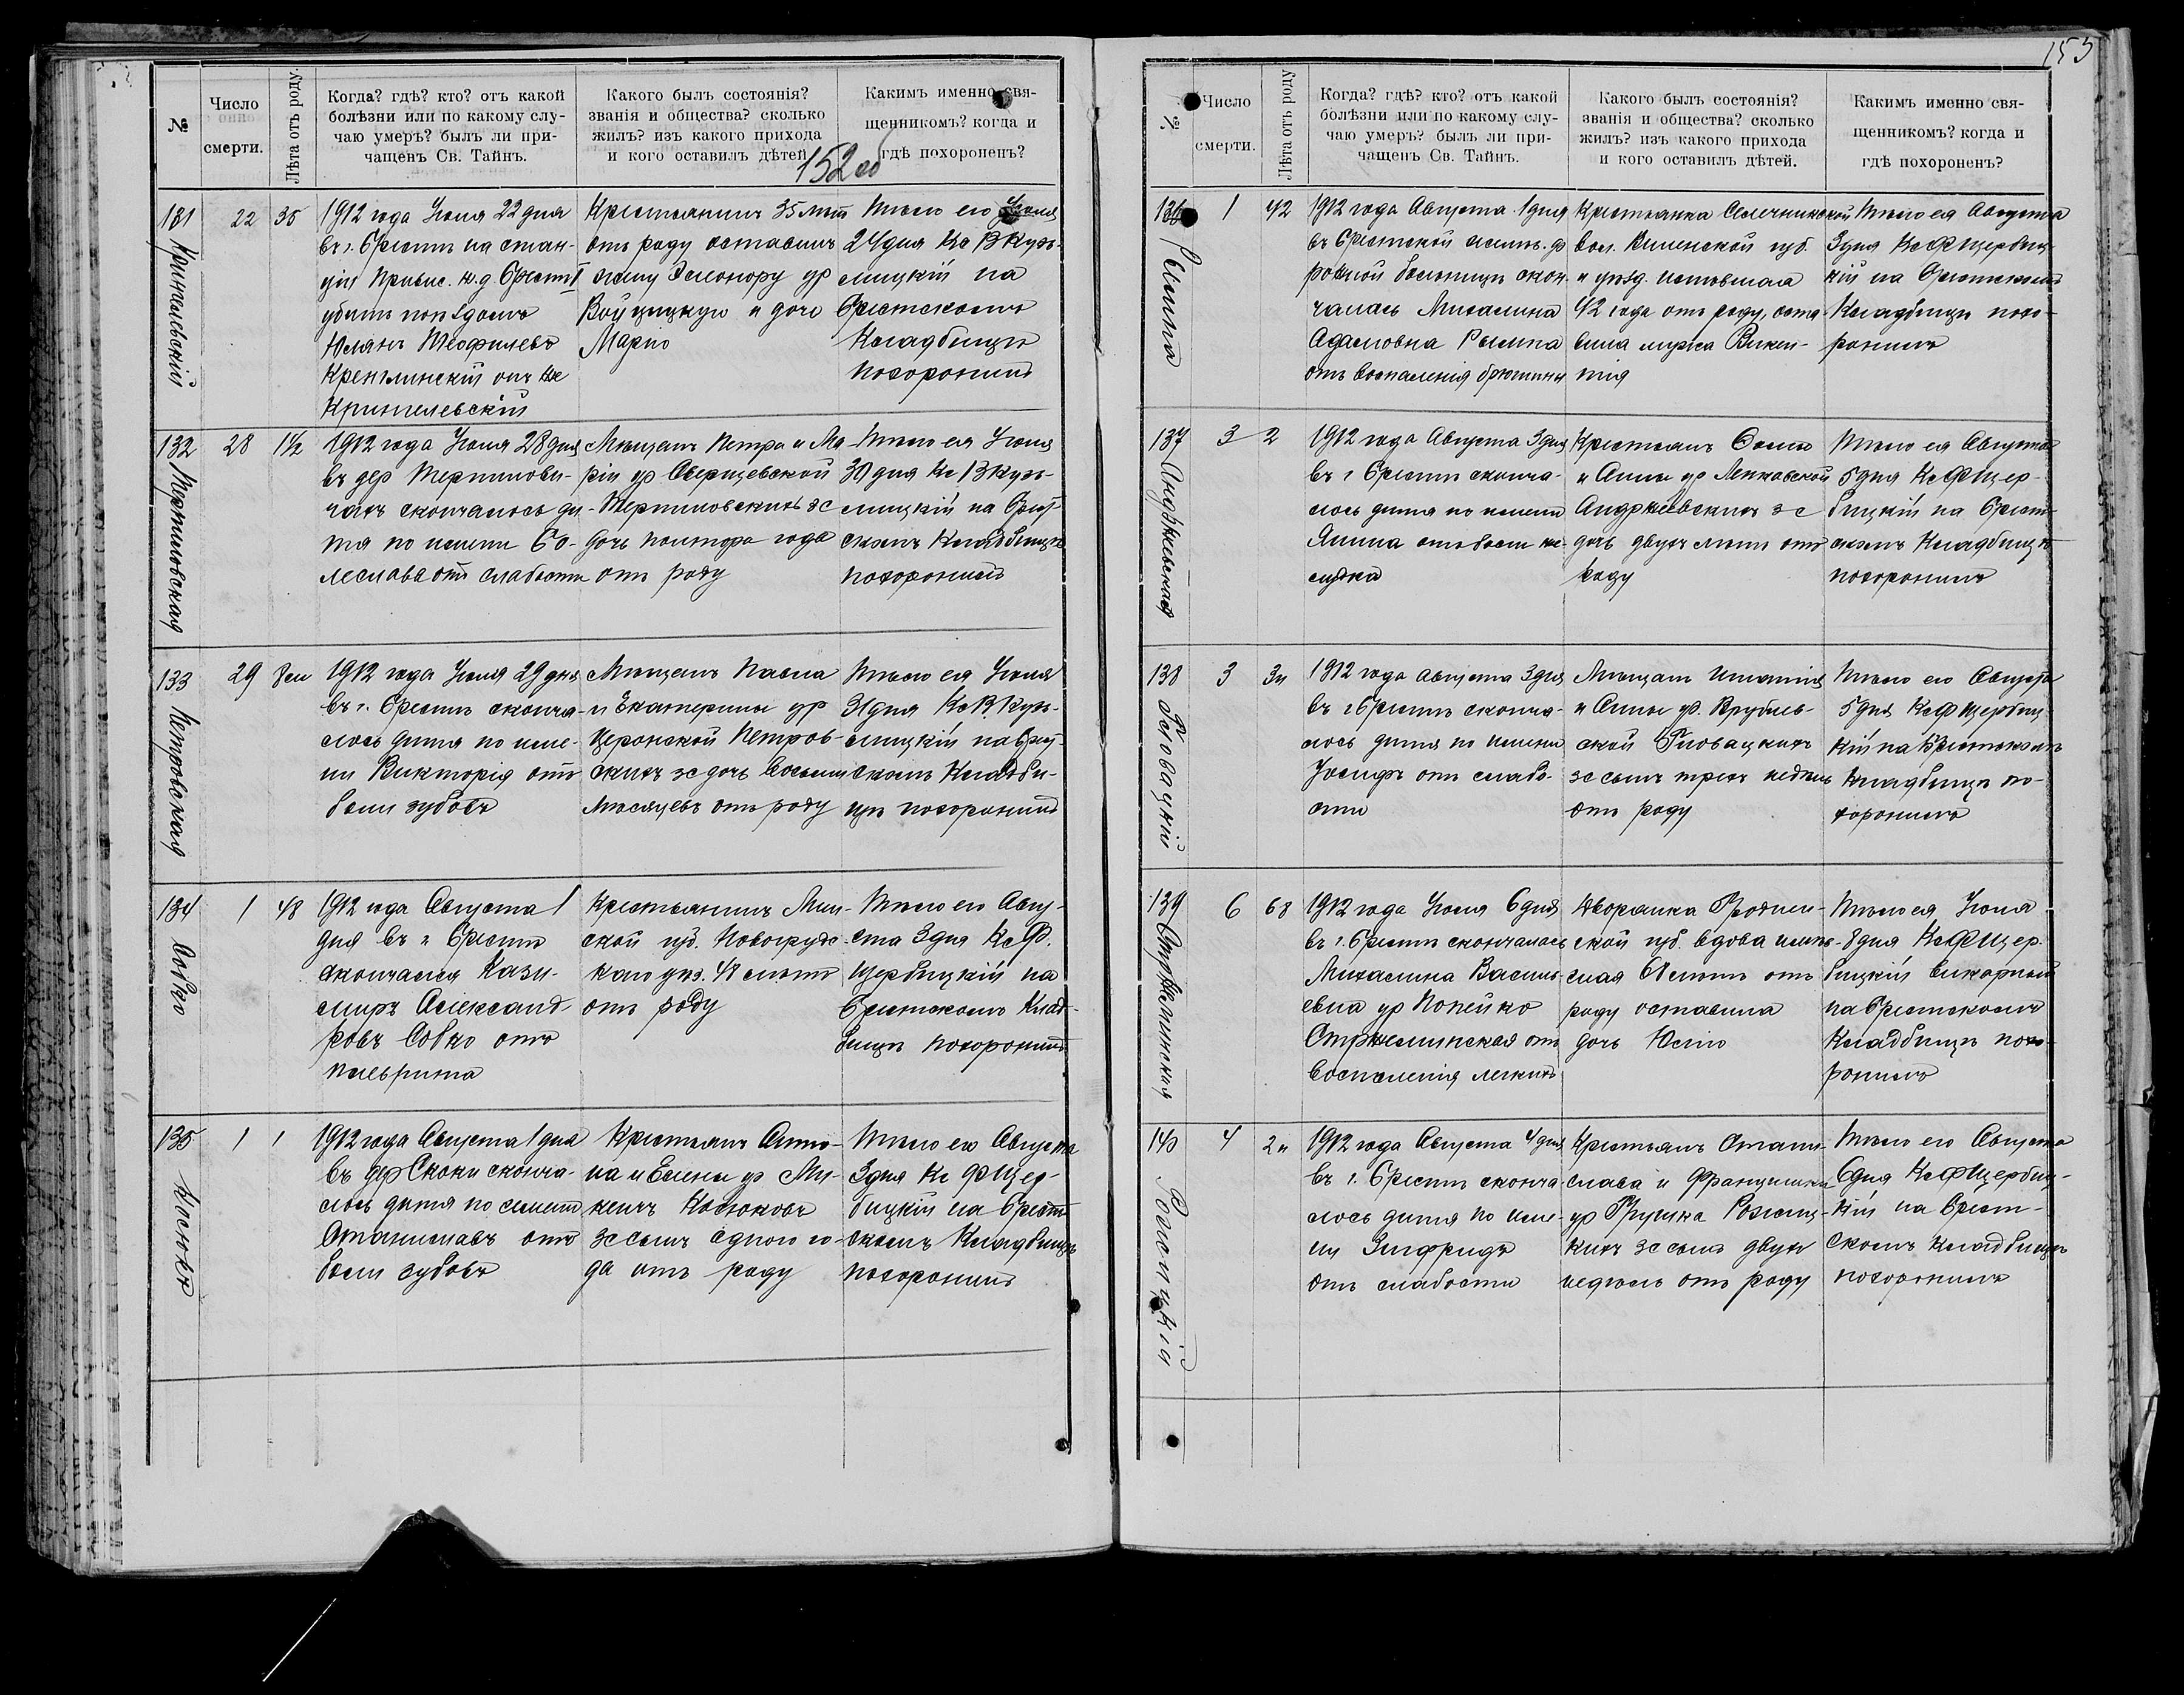 153
№
Число
смерти.
Лѣта отъ роду.
Когда? гдѣ? кто? отъ какой
болѣзни или по какому слу-
чаю умеръ? былъ ли при-
чащенъ Св. Тайнъ.
Какого былъ состоянія?
званія и общества? сколько
жилъ? изъ какого прихода
и кого оставилъ дѣтей
Какимъ именно свя-
щенникомъ? когда и
гдѣ похороненъ?
152 об
131
22
35
1912 года Іюля 22 дня
въ г. Брестѣ на стан-
ціи Привис. ж. д. Брестъ
убитъ поѣздомъ
Юліанъ Теофилевъ
онъ же
Крестьянинъ 35 лѣтъ
отъ роду оставилъ
жену Элеонору ур
Войцицкую и дочь
Марію
Тѣло его Іюля
24 дня Кс В Кузь-
мицкій на
Брестскомъ
Кладбищѣ
похоронилъ
132
Мертиновская
28
1½
1912 года Іюля 28 дня
въ дер
чахъ скончалось ди-
тя по имени Бо-
леслава отъ слабости
Мѣщанъ Петра и Ма-
ріи ур
зс
дочь полтора года
отъ роду
Тѣло ея Іюля
30 дня Кс В Кузь-
мицкій на Брест-
скомъ Кладбищѣ
похоронилъ
133
Петровская
29
8 м
1912 года Іюля 29 дня
въ г. Брестѣ сконча-
лось дитя по име-
ни Викторія отъ
боли зубовъ
Мѣщанъ Павла
и Екатерины ур
Церонской Петров-
скихъ зс дочь восьми
мѣсяцевъ отъ роду
Тѣло ея Іюля
31 дня Кс В. Кузь-
мицкій на Брест-
скомъ Кладби-
щѣ похоронилъ
134
Совко
1
48
1912 года Августа 1
дня въ г Брестѣ
скончался Кази-
миръ Александ-
ровъ Совко отъ
плеврита
Крестьянинъ Мин-
ской губ. Новогрудс-
каго уѣз. 48 лѣтъ
отъ роду
Тѣло его Авгу-
ста 3 дня Кс Ф.
Щербицкій на
Брестскомъ Клад-
бищѣ похоронилъ
135
Косюкъ
1
1
1912 года Августа 1 дня
въ дер Скоки сконча-
лось дитя по имени
Станиславъ отъ
боли зубовъ
Крестьянъ Анто-
на и Елены ур Ми-
Косюковъ
зс сынъ одного го-
да отъ роду
Тѣло его Августа
3 дня Кс Ф Щер-
бицкій на Брест-
скомъ Кладбищѣ
похоронилъ
№
Число
смерти.
Лѣта отъ роду
Когда? гдѣ? кто? отъ какой
болѣзни или по какому слу-
чаю умеръ? былъ ли при-
чащенъ Св. Тайнъ.
Какого былъ состоянія?
званія и общества? сколько
жилъ? изъ какого прихода
и кого оставилъ дѣтей.
Какимъ именно свя-
щенникомъ? когда и
гдѣ похороненъ?
136
1
42
1912 года Августа 1 дня
въ Брестской
больницѣ скон-
чалась Михалина
Адамовна
отъ воспаленія брюшины
Крестьянка
вол. Виленской губ.
и уѣзд.
42 года отъ роду, оста-
вила мужа Викен-
тія
Тѣло ея Августа
3 дня Кс Ф Щербиц-
кій на Брестскомъ
Кладбищѣ похо-
ронилъ
137
Андржіевская
3
2
1912 года Августа 3 дня
въ г Брестѣ сконча-
лось дитя по имени
Янина отъ боли же-
лудка
Крестьянъ
и Анны ур
Андржіевскихъ зс
дочь двухъ лѣтъ отъ
роду
Тѣло ея Августа
5 дня Кс Ф Щер-
бицкій на Брест-
скомъ Кладбищѣ
похоронилъ
138
Гловацкій
3
3н
1912 года Августа 3 дня
въ г Брестѣ сконча-
лось дитя по имени
Іосифъ отъ слабо-
сти
Мѣщанъ Игнатія
и Анны ур. Врублев-
ской Гловацкихъ
зс сынъ трехъ недѣль
отъ роду
Тѣло его Августа
5 дня Кс Ф Щербиц-
кій на Брестскомъ
Кладбищѣ по-
хоронилъ
139
Стржелинская
6
68
1912 года Іюля 6 дня
въ г. Брестѣ скончалась
Михалина Василь-
евна ур Попейко
Стржелинская отъ
воспаленія легкихъ
Дворянка Гроднен-
ской губ. вдова
68 лѣтъ отъ
роду оставила
дочь
Тѣло ея Іюля
8 дня Кс Ф Щер-
бицкій викарный
на Брестскомъ
Кладбищѣ похо-
ронилъ
140
4
2н
1912 года Августа 4 дня
въ г. Брестѣ сконча-
лось дитя по име-
ни Зигфридъ
отъ слабости
Крестьянъ Стани-
слава и Францишки
ур Грушка
кихъ зс сынъ двухъ
недѣль отъ роду
Тѣло его Августа
6 дня Кс Ф Щербиц-
кій на Брест-
скомъ Кладбищѣ
похоронилъ